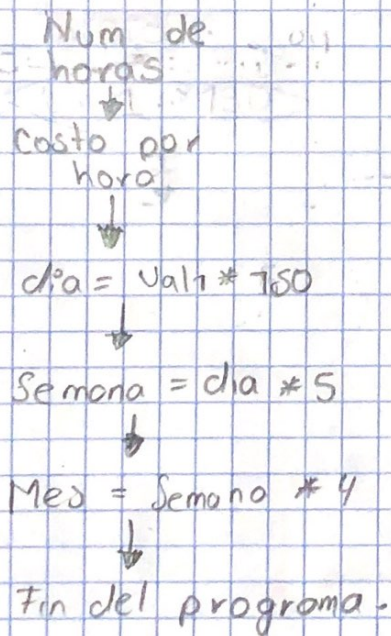 Num de
horas
Costo por
hora
dia = Val1 * 150
Semana = dia * 5
Mes = Semana * 4
Fin del programa.